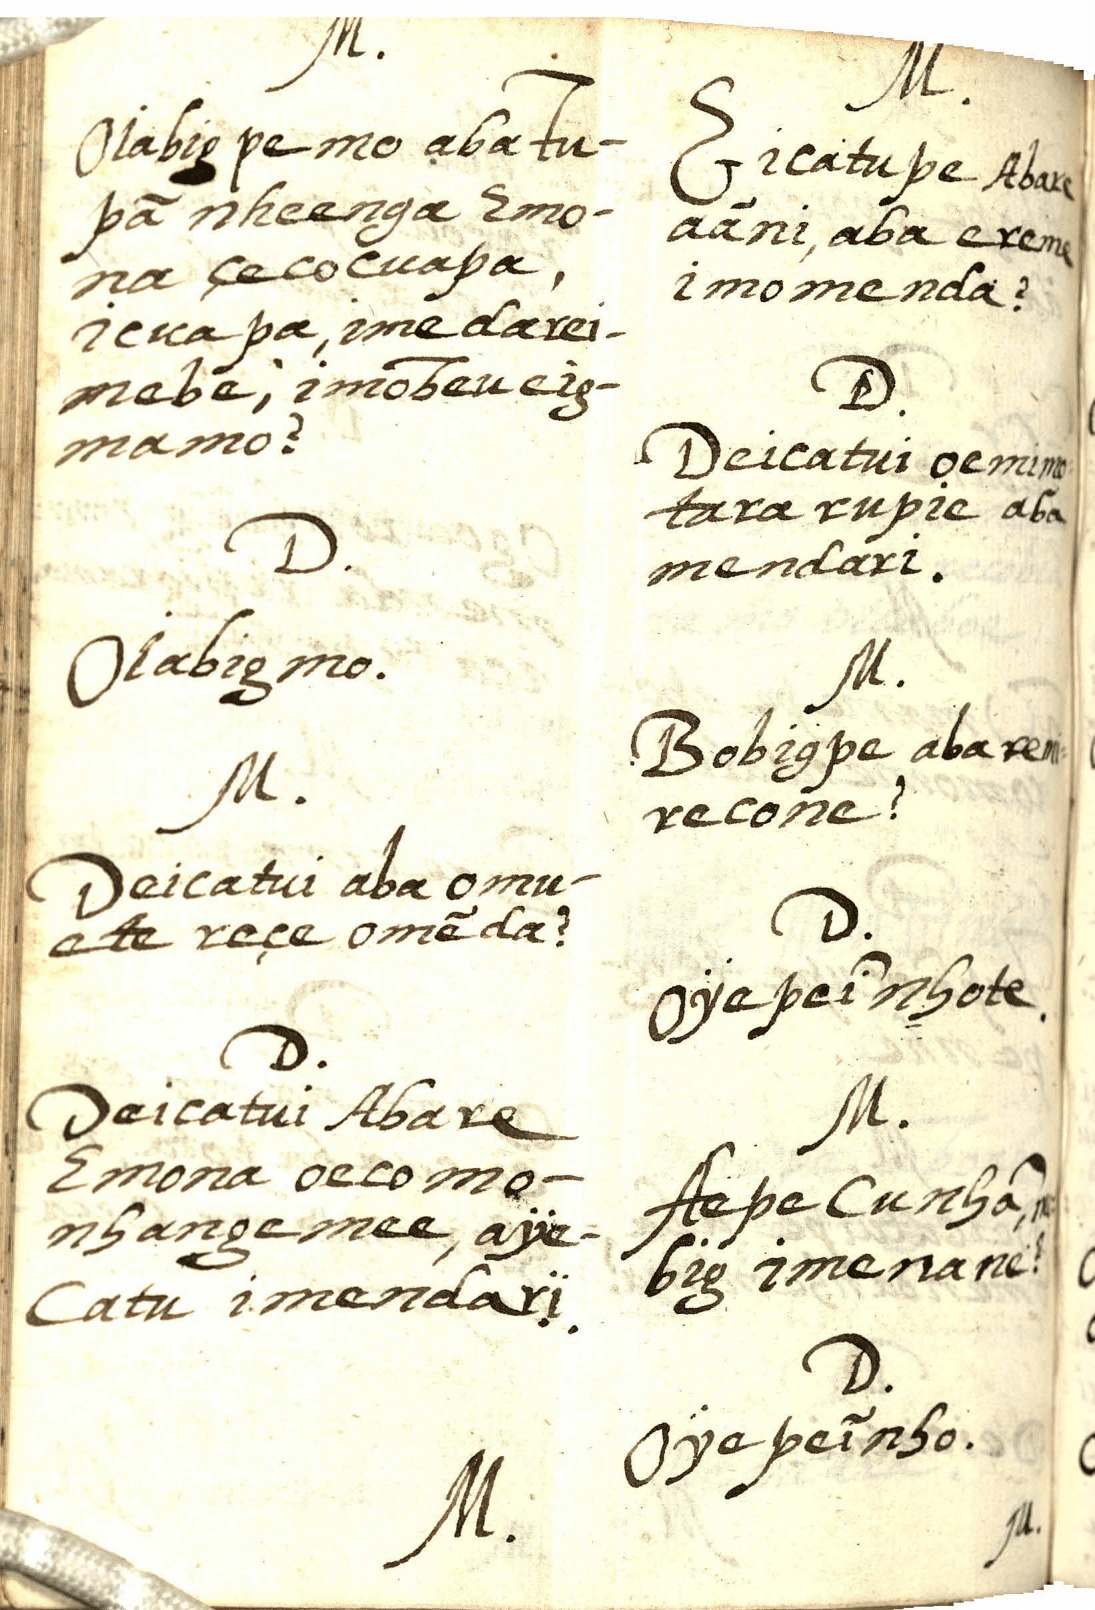 M.
Oiabig pe mo aba tu-
pã nheenga Emo-
na çecocuapa,
icuapa, imedarei-
mebe, imõbeu eig-
mamo?
D.
Oiabig mo.
M.
Deicatui aba omu-
ete reçe omẽda?
D.
Deicatui Abare
Emona oecomo-
nhangemee, aÿe-
Catu imendarï.
M.
M.
Eicatupe Abare
aãni, aba ereme
imomenda?
D.
Deicatui oemimo
tara rupie aba
mendari.
M.
Bobigpe aba remi-
recone?
D.
Oÿepeĩnhote.
M.
Aepe Cunhã,
big imenane?
D.
Oÿepeĩnho.
M.